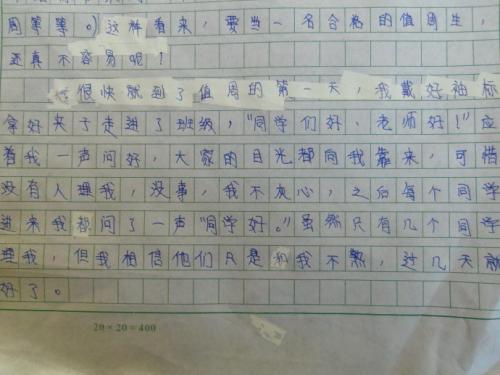 周等等。)这样看来，要当一名合格的值周生，
还真不容易呢！
很快就到了值周的第一天，我戴好袖标
拿好夹子走进了班级，“同学们好、老师好！”应
着我一声问好，大家的目光都向我靠来，可惜
没有人理我，没事，我不灰心，之后每个同学
进来我都问了一声“同学好。”虽然只有几个同学
理我，但我相信他们只是和我不熟，过几天就
好了。
20×20=400